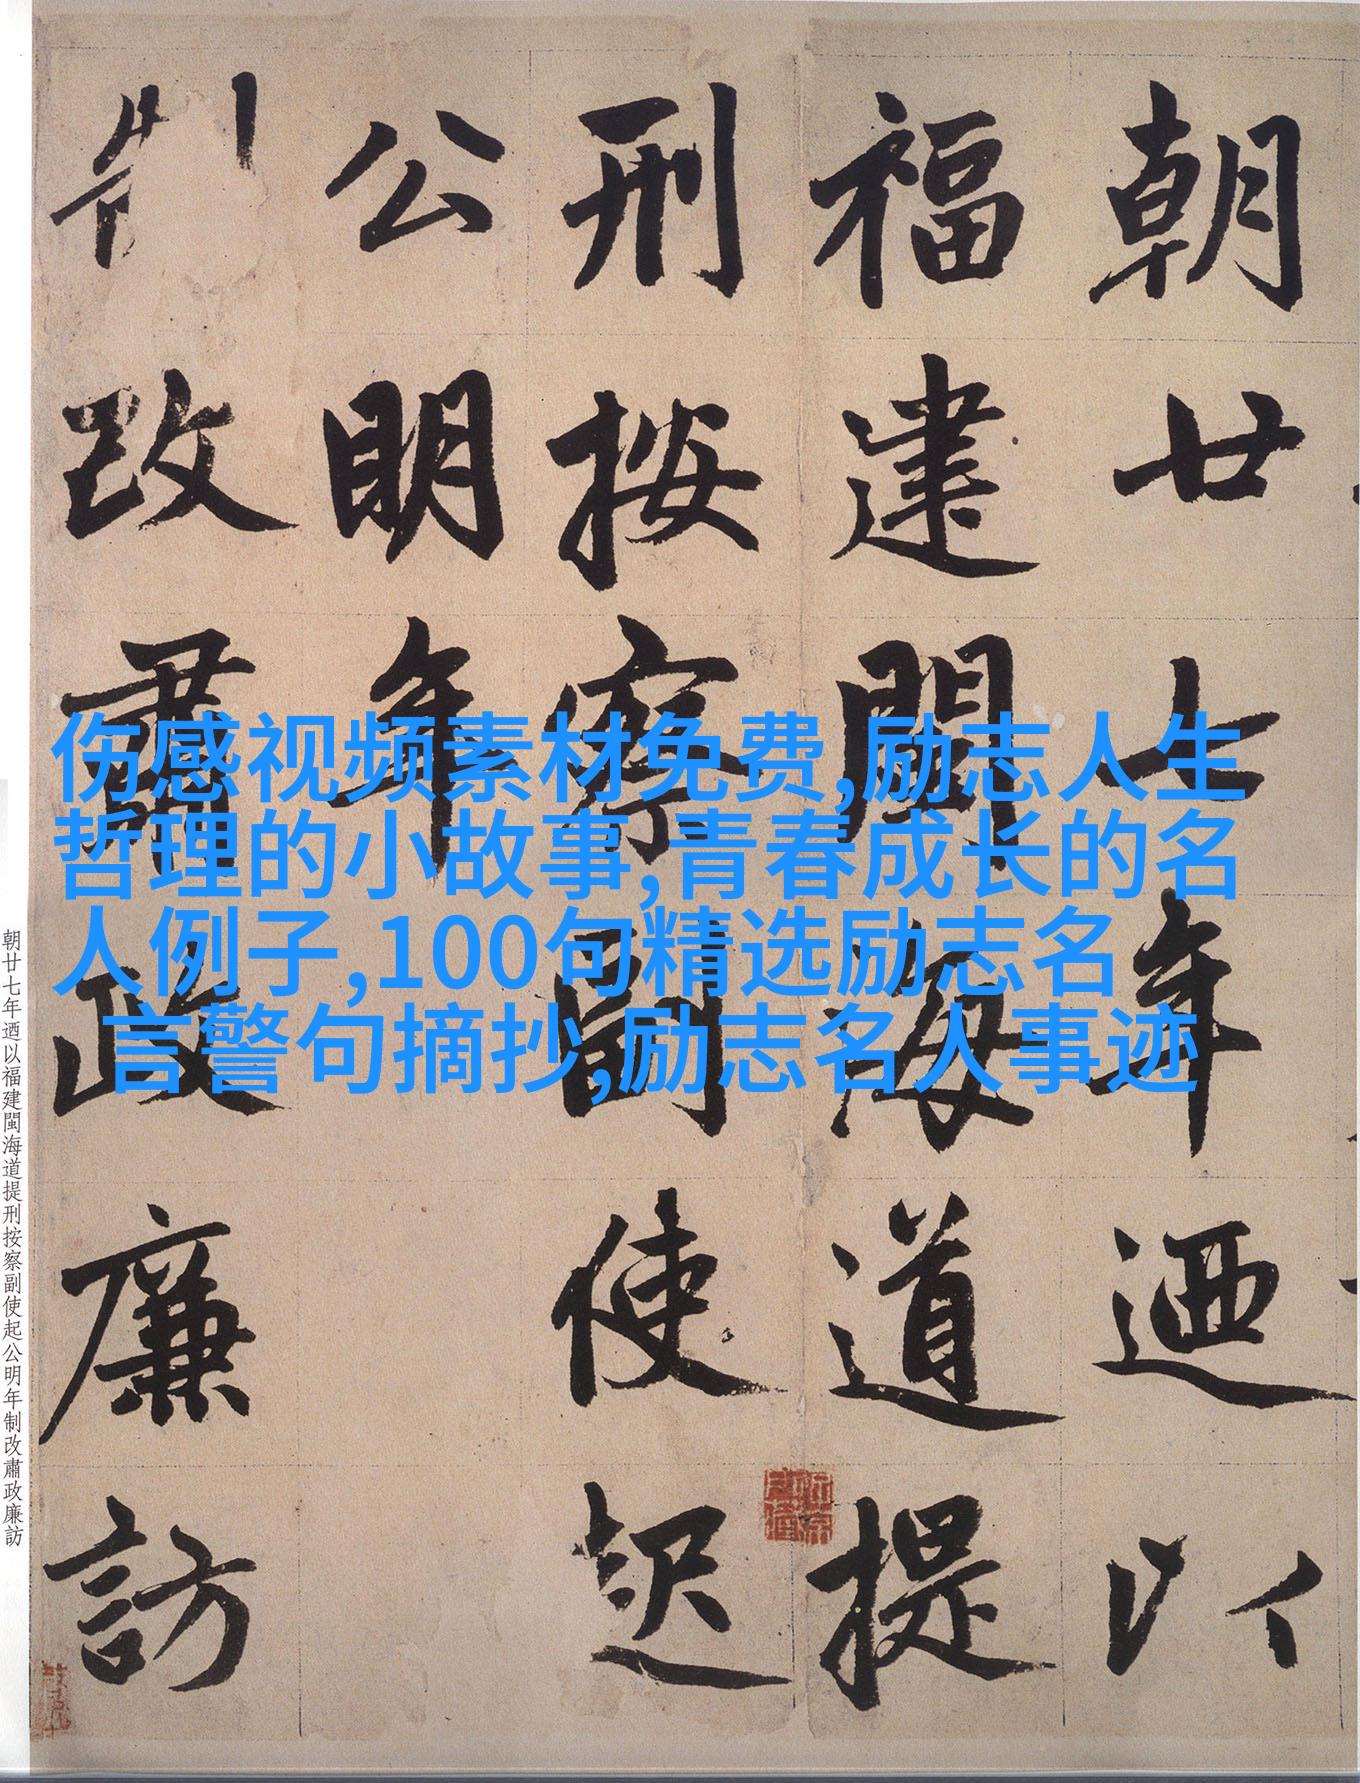 朝廿七年迺以
福建閩海道提
刑按察副使起
公明年
制改肅政廉訪
伤感视频素材免费,励志人生
哲理的小故事,青春成长的名
人例子,100句精选励志名
言警句摘抄,励志名人事迹
朝廿七年迺以福建閩海道提刑按察副使起公明年制改肅政廉訪